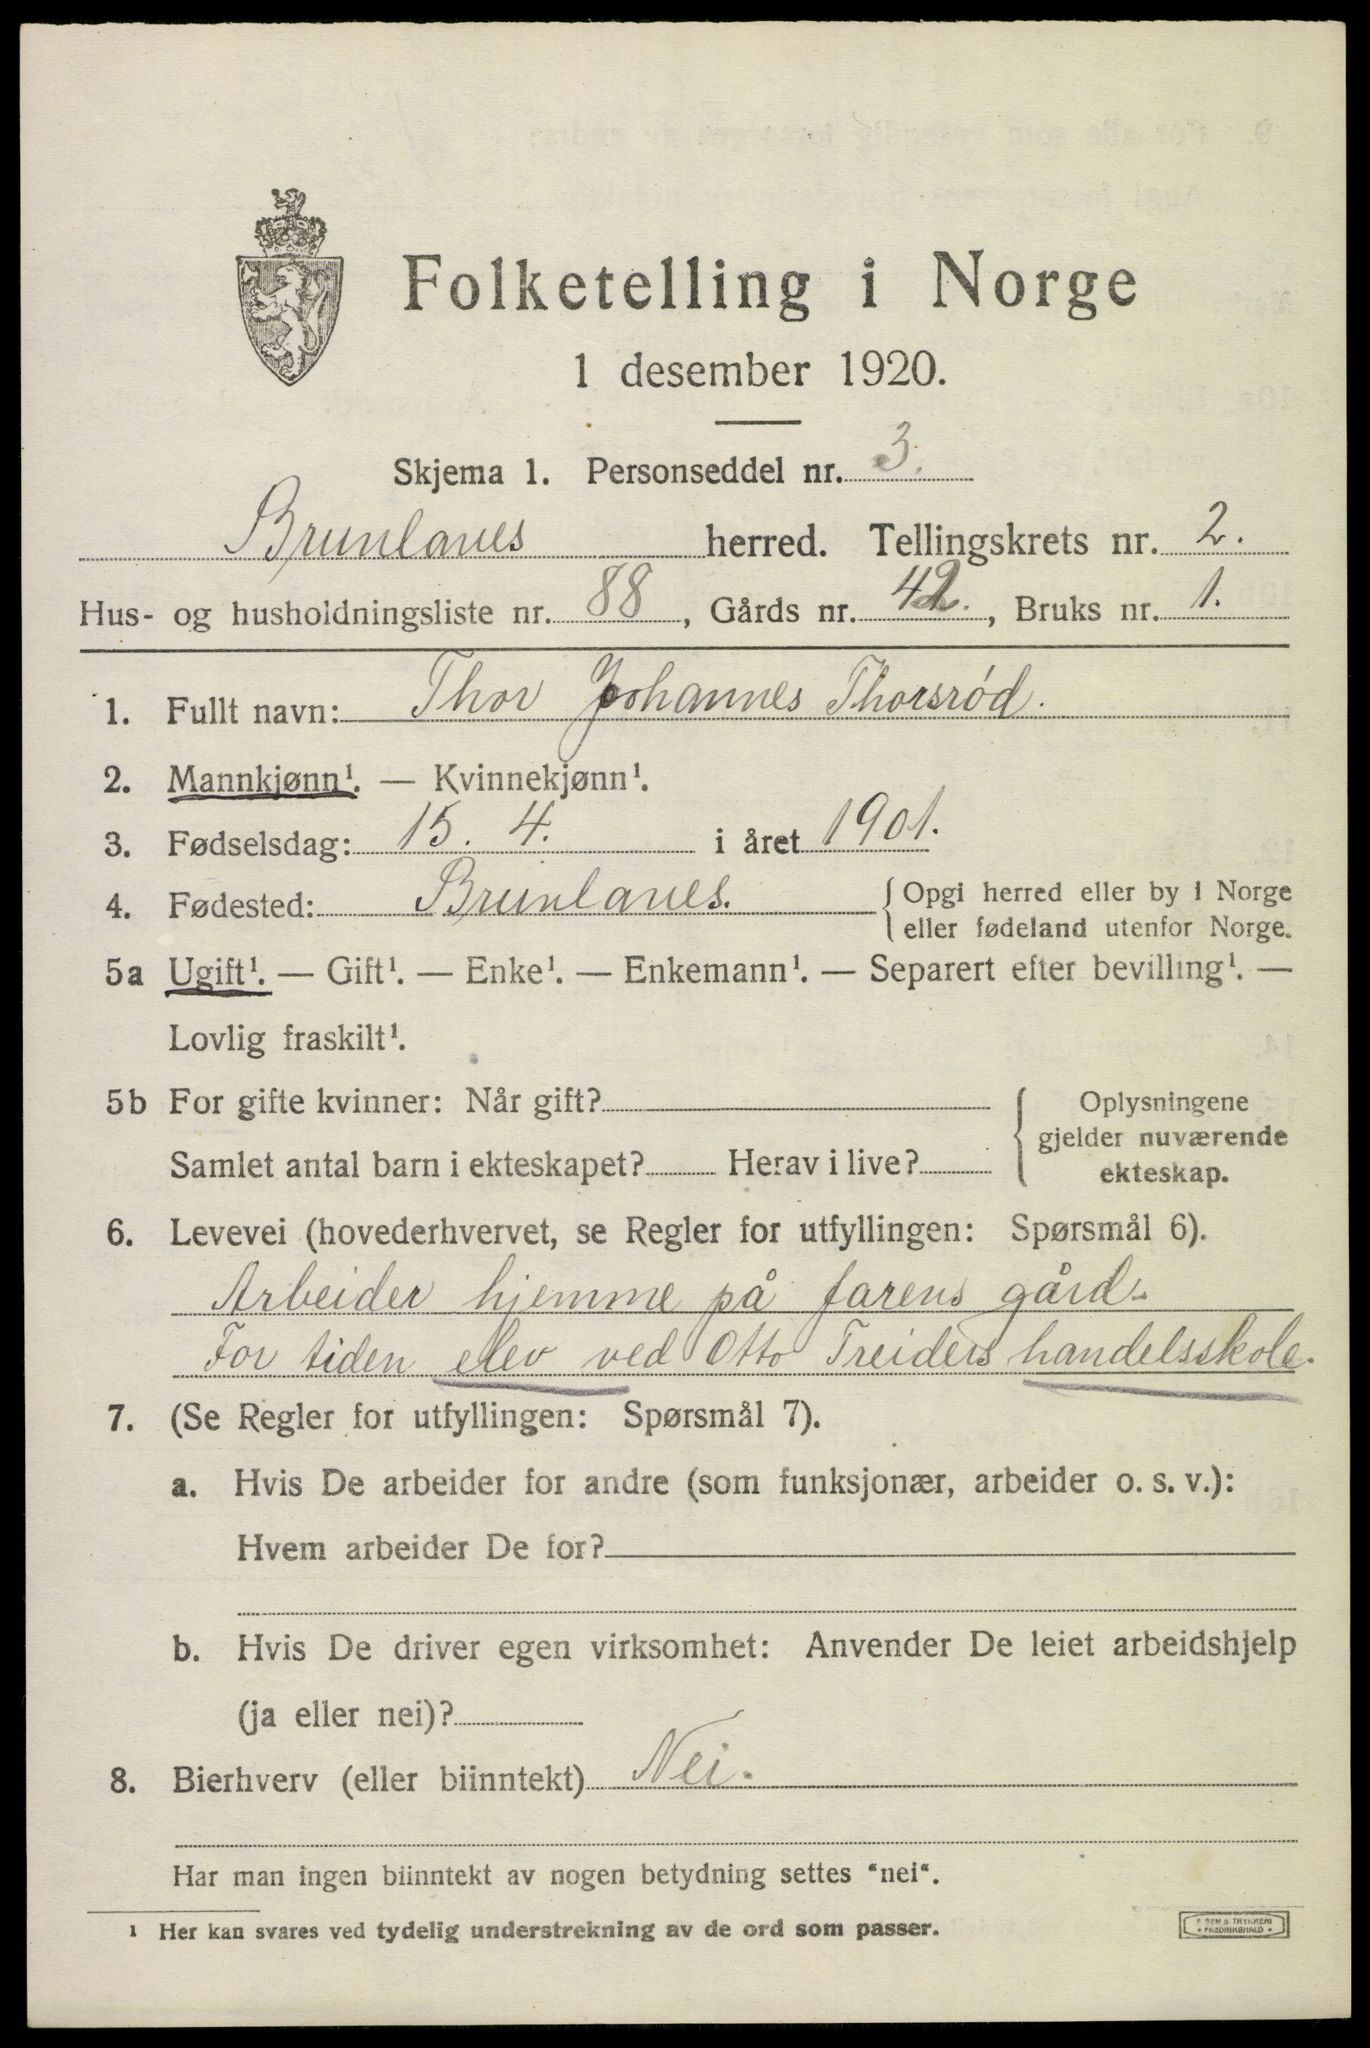 Folketelling i Norge
1 desember 1920.
Skjema 1. Personseddel nr. 3.
Brunlanes herred. Tellingskrets nr. 2.
Hus- og husholdningsliste nr. 88, Gårds nr. 42., Bruks nr. 1.
1. Fullt navn: Thor Johannes Thorsrød.
2. Mannkjønn¹. — Kvinnekjønn¹.
3. Fødselsdag: 15. 4. i året 1901.
4. Fødested: Brunlanes. { Opgi herred eller by i Norge
eller fødeland utenfor Norge.
5a Ugift¹. — Gift¹. — Enke¹. — Enkemann¹. — Separert efter bevilling¹. —
Lovlig fraskilt¹.
5b For gifte kvinner: Når gift?
Samlet antal barn i ekteskapet? Herav i live?
{ Oplysningene
gjelder nuværende
ekteskap.
6. Levevei (hovederhvervet, se Regler for utfyllingen: Spørsmål 6).
Arbeider hjemme på farens gård.
For tiden elev ved Otto Treiders handelsskole.
7. (Se Regler for utfyllingen: Spørsmål 7).
a. Hvis De arbeider for andre (som funksjonær, arbeider o. s. v.):
Hvem arbeider De for?
b. Hvis De driver egen virksomhet: Anvender De leiet arbeidshjelp
(ja eller nei)?
8. Bierhverv (eller biinntekt) Nei.
Har man ingen biinntekt av nogen betydning settes "nei".
¹ Her kan svares ved tydelig understrekning av de ord som passer.